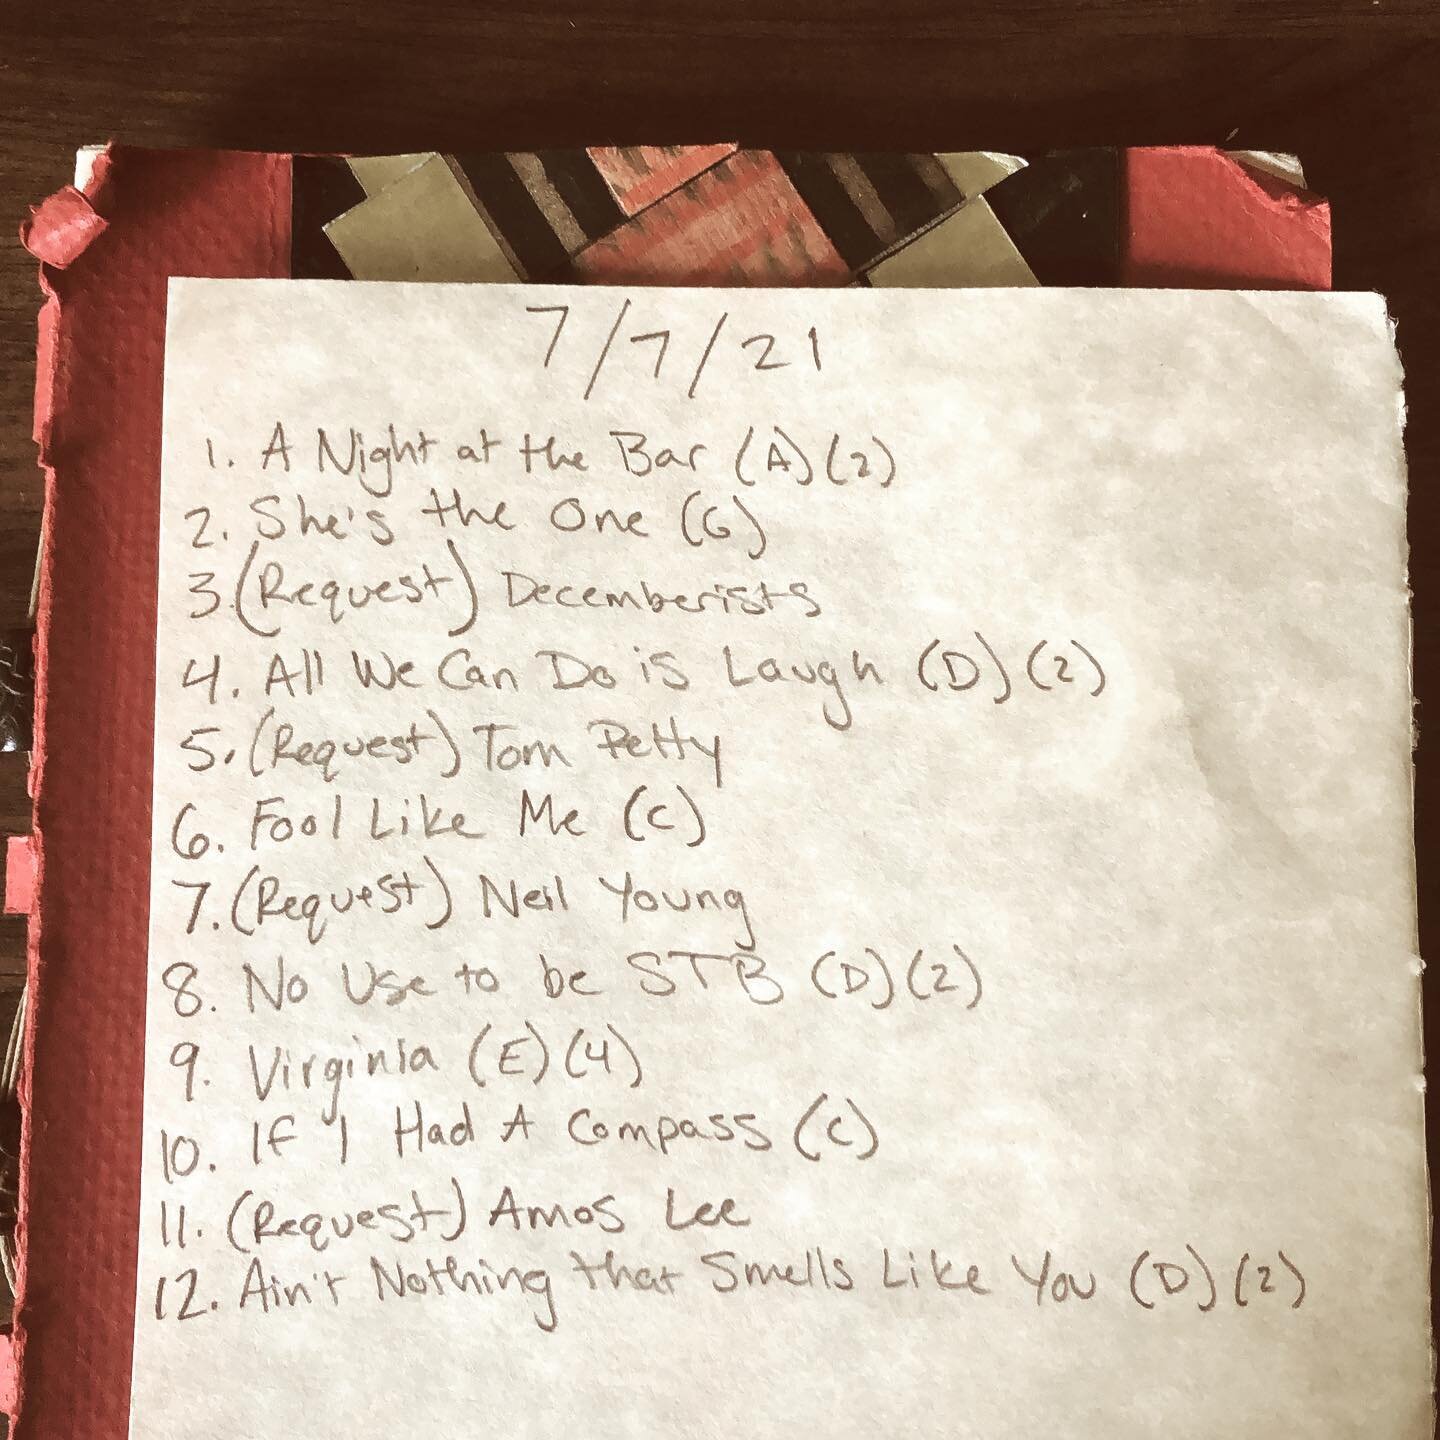 7/7/21
1. A Night at the Bar (A)(2)
2. She's the One (G)
3. (Request) Decemberists
4. All We Can Do is Laugh (D)(2)
5. (Request) Tom Petty
6. Fool Like Me (C)
7. (Request) Neil Young
8. No Use to be STB (D)(2)
9. Virginia (E)(4)
10. If I Had A Compass (C)
11. (Request) Amos Lee
12. Ain't Nothing that Smells Like You (D)(2)